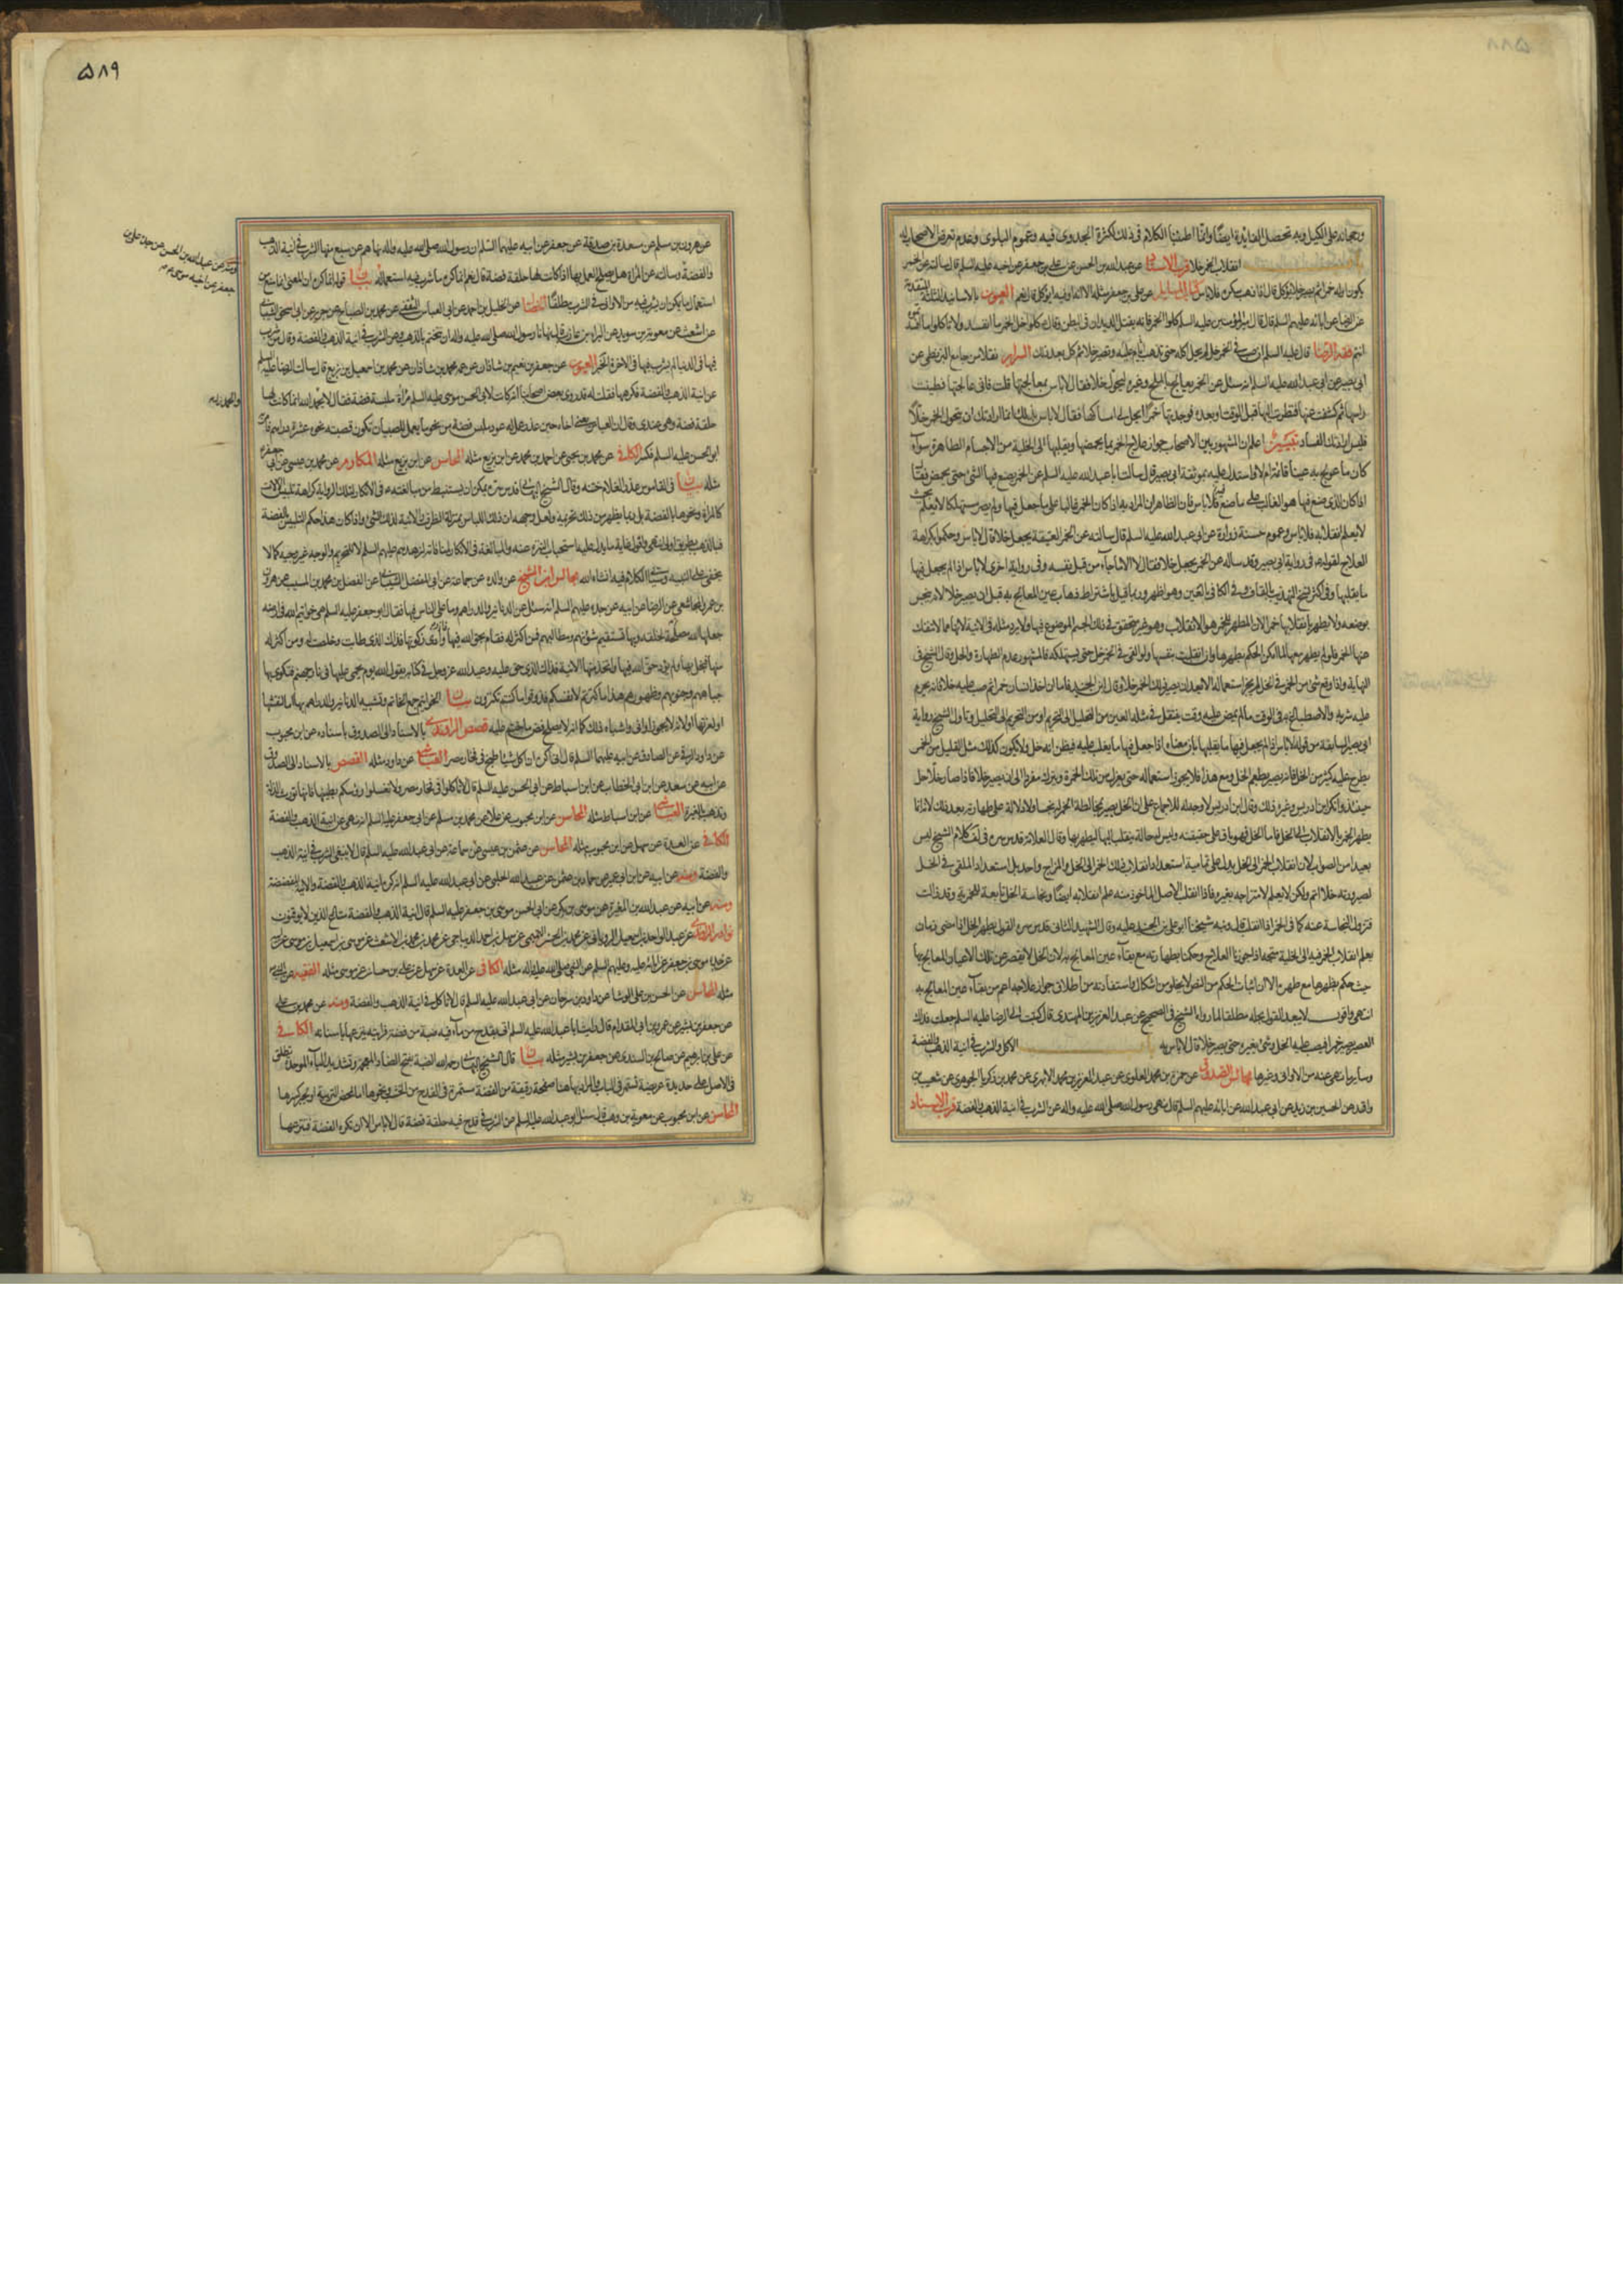 ورجحانه على الكيل وبه تحصل الفايدة ايضا وانما اطنبنا الكلام فى ذلك لكثرة الجدوى فيه وعموم البلوى وعدم تعرض الاصحاب له
انقلاب الخمر خلا قرب الاسناد عن عبد الله بن الحسن عن على بن جعفر عن اخيه عليه السلم قال سالته عن الخمر
يكون اوله خمرا ثم يصير خلا يؤكل قال اذا ذهب سكره فلا باس كتاب المسايل عن على بن جعفر مثله الا ان فيه ايؤكل قال نعم العيون بالاسانيد الثلثة المتقدمة
عن الرضا عن ابائه عليهم السلم قال قال امير المؤمنين عليه السلم كلوا خل الخمر فانه يقتل الديدان فى البطن وقال كلوا خل الخمر ما انفسد ولا تاكلوا ما افسدتموه
انتم فقه الرضا قال عليه السلم ان صب فى الخمر خل لم يحل اكله حتى تذهب عليه ايام وتصير خلا ثم كل بعد ذلك السرائر نقلا من جامع البزنطى عن
ابى بصير عن ابى عبد الله عليه السلم انه سئل عن الخمر يعالج بالملح وغيره ليحول خلا فقال لا باس بمعالجتها قلت فانى عالجتها فطينت
راسها ثم كشفت عنها فنظرت اليها قبل الوقت وبعده فوجدتها خمرا ايحل لى امساكها فقال لا باس بذلك انما ارادتك ان تتحول الخمر خلا
فليس ارادتك الفساد تبيين اعلم ان المشهور بين الاصحاب جواز علاج الخمر بما يحمضها ويقلبها الى الخلية من الاجسام الطاهرة سواء
كان ما عولج به عينا قائمة ام لا واستدل عليه بموثقة ابى بصير قال سالت ابا عبد الله عليه السلم عن الخمر يصنع فيها الشئ حتى يحمض فقال
اذا كان الذى صنع فيها هو الغالب على ما صنع فلا باس فان الظاهر ان المراد به اذا كان الخمر غالبا على ما جعل فيها ولم يصر مستهلكا
لا يعلم انقلابه فلا باس وعموم حسنة زرارة عن ابى عبد الله عليه السلم قال سالته عن الخمر العتيقة يجعل خلا قال لا باس وحكموا بكراهة
العلاج لقوله فى رواية ابى بصير وقد ساله عن الخمر يجعل خلا فقال لا الا ما جاء من قبل نفسه وفى رواية اخرى لا باس اذا لم يجعل فيها
ما يقلبها وفى اكثر نسخ التهذيب بالقاف وفى الكافى بالغين وهو اظهر وربما قيل باشتراط ذهاب عين المعالج به قبل ان يصير خلا لانه ينجس
بوضعه ولا يطهر بانقلابها خمرا لان المطهر للخمر هو الانقلاب وهو غير متحقق فى ذلك الجسم الموضوع فيها ولا يرد مثله فى الانية لانها مما لا تنفك
عنها الخمر فلو لم يطهر معها لما امكن الحكم بطهرها وان انقلبت بنفسها ولو القى فى الخمر خل حتى يستهلكه فالمشهور عدم الطهارة والحل وقال الشيخ فى
النهاية واذا وقع شئ من الخمر فى الخل لم يجز استعماله الا بعد ان يصير ذلك الخمر خلا وقال ابن الجنيد فاما ان اخذ انسان خمرا ثم صب عليه خلا فانه يحرم
عليه شربه والاصطباغ به فى الوقت ما لم يمض عليه وقت ينتقل فى مثله العين من التحليل الى التحريم او من التحريم الى التحليل وتاول الشيخ رواية
ابى بصير السابقة من قوله لا باس اذا لم يجعل فيها ما يقلبها بان معناه اذا جعل فيها ما يغلب عليه فيظن انه خل ولا يكون كذلك مثل القليل من الخمر
يطرح عليه كثير من الخل فانه يصير بطعم الخل ومع هذا فلا يجوز استعماله حتى يعزل من تلك الخمرة ويترك مفردا الى ان يصير خلا فاذا صار خلا حل
حينئذ وانكر ابن ادريس وغيره ذلك وقال ابن ادريس لا وجه له للاجماع على ان الخل يصير بمخالطة الخمر له نجسا ولا دلالة على طهارته بعد ذلك لانه انما
يطهر الخمر بالانقلاب الى الخل فاما الخل فهو باق على حقيقته وليس له حالة ينقلب اليها ليطهر بها وقال العلامة قدس سره فى لف كلام الشيخ ليس
بعيدا من الصواب لان انقلاب الخمر الى الخل يدل على تمامية استعداد انقلاب ذلك الخمر الى الخل والمزاج واحد بل استعداد الملقى فى الخل
لصيرورته خلا اتم ولكن لا يعلم لامتزاجه بغيره فاذا انقلب الاصل الماخوذ منه علم انقلابه ايضا ونجاسة الخل تابعة للخمرية وقد زالت
فتزول النجاسة عنه كما فى الخمر اذا انقلب قال ونبه شيخنا ابو على بن الجنيد عليه وقال الشهيد الثانى قدس سره القول بطهر الخل اذا مضى زمان
يعلم انقلاب الخمر فيه الى الخلية متجه اذا جوزنا العلاج وحكمنا بطهارته مع بقاء عين المعالج به لان الخل لا يقصر عن تلك الاعيان المعالج بها
حيث حكم بطهرها مع طهره الا ان اثبات الحكم من النص لا يخلو من اشكال واستفادته من اطلاق جواز علاجه اعم من بقاء عين المعالج به
انتهى واقول لا يبعد القول بحله مطلقا لما رواه الشيخ فى الصحيح عن عبد العزيز بن المهتدى قال كتبت الى الرضا عليه السلم جعلت فداك
العصير يصير خمرا فيصب عليه الخل وشئ يغيره حتى يصير خلا قال لا باس به باب الاكل والشرب فى انية الذهب والفضة
وساير ما نهى عنه من الاوانى وغيرها مجالس الصدوق عن حمزة بن محمد العلوى عن عبد العزيز بن محمد الابهرى عن محمد بن زكريا الجوهرى عن شعيب بن
واقد عن الحسين بن زيد عن ابى عبد الله عن ابائه عليهم السلم قال نهى رسول الله صلى الله عليه واله عن الشرب فى انية الذهب والفضة قرب الاسناد
٥٨٩
ومنه عن عبد الله بن الحسن عن جده على بن
جعفر عن اخيه موسى
والحمد لله
عن هرون بن مسلم عن مسعدة بن صدقة عن جعفر عن ابيه عليهما السلام ان رسول الله صلى الله عليه واله نهاهم عن سبع منها الشرب فى انية الذهب
والفضة وسالته عن المراة هل يصلح العمل بها اذا كانت لها حلقة فضة قال نعم انما كره ما شرب فيه استعماله بيان قوله انما كره ان المعنى انما يمنع من
استعمال ما يمكن ان يشرب فيه من الاوانى فى الشرب مطلقا الخصال عن الخليل بن احمد عن ابى العباس الثقفى عن محمد بن الصباح عن جرير عن ابى اسحق الشيبانى
عن اشعث عن معوية بن سويد عن البراء بن عازب قال نهانا رسول الله صلى الله عليه واله ان نتختم بالذهب وعن الشرب فى انية الذهب والفضة وقال من شرب
فيها فى الدنيا لم يشرب فيها فى الاخرة الخبر العيون عن جعفر بن نعيم بن شاذان عن عمه محمد بن شاذان عن محمد بن اسمعيل بن بزيع قال سالت الرضا عليه السلم
عن انية الذهب والفضة فكرهها فقلت له قد روى بعض اصحابنا انه كانت لابى الحسن موسى عليه السلم مرآة ملبسة فضة فقال لا بحمد الله انما كانت لها
حلقة فضة وهى عندى وقال ان العباس يعنى اخاه حين عذر عمل له عود ملبس فضة من نحو ما يعمل للصبيان تكون قصبته نحو عشرة دراهم فامر به
ابو الحسن عليه السلم فكسر الكافى عن محمد بن يحيى عن احمد بن محمد عن ابن بزيع مثله المحاسن عن ابن بزيع مثله المكارم عن محمد بن عيسى عن ابى جعفر
مثله بيان فى القاموس عذر الغلام ختنه وقال الشيخ البهائى قدس سره يمكن ان يستنبط من مبالغته ع فى الانكار لتلك الرواية كراهة تلبيس الالات
كالمراة ونحوها بالفضة بل ربما يظهر من ذلك تحريمه ولعل وجهه ان ذلك اللباس بمنزلة الظرف والانية لذلك الشئ واذا كان هذا حكم التلبيس بالفضة
فبالذهب بطريق اولى انتهى واقول غاية ما يدل عليه استحباب التنزه عنه والمبالغة فى الانكار لمنافاته لزهدهم عليهم السلم لا للتحريم والوجه غير وجيه كما لا
يخفى على النبيه وسياتى الكلام فيه انشاء الله مجالس ابن الشيخ عن والده عن جماعة عن ابى المفضل الشيبانى عن الفضل بن محمد بن المسيب عن هرون
بن عمرو المجاشعى عن الرضا عن ابيه عن جده عليهم السلم انه سئل عن الدنانير والدراهم وما على الناس فيها فقال ابو جعفر عليه السلم هى خواتيم الله فى ارضه
جعلها الله مصلحة لخلقه وبها تستقيم شؤنهم ومطالبهم فمن اكثر له فقام بحق الله فيها وادى زكوتها فذاك الذى طابت وخلصت له ومن اكثر له
منها فبخل بها ولم يؤد حق الله فيها واتخذ منها الانية فذاك الذى حق عليه وعيد الله عز وجل فى كتابه يقول الله يوم يحمى عليها فى نار جهنم فتكوى بها
جباههم وجنوبهم وظهورهم هذا ما كنزتم لانفسكم فذوقوا ما كنتم تكنزون بيان الخواتيم جمع الخاتم وتشبيه الدنانير والدراهم بها اما لنقشها
او لعزتها او لانه لا يجوز اوانى واشباه ذلك كما انه لا يصلح فض ما ختم عليه قصص الراوندى بالاسناد الى الصدوق باسناده عن ابن محبوب
عن داود الرقى عن الصادق عن ابيه عليهما السلم قال انى اكره ان اكل شيئا طبخ فى فخار مصر العياشى عن داود مثله القصص بالاسناد الى الصدوق
عن ابيه عن سعد عن ابن ابى الخطاب عن ابن اسباط عن ابى الحسن عليه السلم قال لا تاكلوا فى فخار مصر ولا تغسلوا رؤسكم بطينها فانها تورث الذلة
وتذهب بالغيرة العياشى عن ابن اسباط مثله المحاسن عن ابن محبوب عن علا عن محمد بن مسلم عن ابى جعفر عليه السلم انه نهى عن انية الذهب والفضة
الكافى عن العدة عن سهل عن ابن محبوب مثله المحاسن عن عثمن بن عيسى عن سماعة عن ابى عبد الله عليه السلم قال لا ينبغى الشرب فى انية الذهب
والفضة ومنه عن ابيه عن ابن ابى عمير عن حماد بن عثمن عن عبيد الله الحلبى عن ابى عبد الله عليه السلم انه كره انية الذهب والفضة والانية المفضضة
ومنه عن ابيه عن عبد الله بن المغيرة عن موسى بن بكر عن ابى الحسن موسى بن جعفر عليه السلم قال انية الذهب والفضة متاع الذين لا يوقنون
نوادر الراوندى عن عبد الواحد بن اسمعيل الرويانى عن محمد بن الحسن التميمى عن سهل بن احمد الديباجى عن محمد بن محمد بن الاشعث عن موسى بن اسمعيل بن موسى
عن جده موسى بن جعفر عن ابائه عليه وعليهم السلم عن النبى صلى الله عليه واله مثله الكافى عن العدة عن سهل عن على بن حسان عن موسى مثله الفقيه عن النبى ص
مثله المحاسن عن الحسن بن على الوشا عن داود بن سرحان عن ابى عبد الله عليه السلم قال لا تاكل فى انية الذهب والفضة ومنه عن محمد بن على
عن جعفر بن بشير عن عمرو بن ابى المقدام قال رايت ابا عبد الله عليه السلم اتى بقدح من ماء فيه ضبة من فضة فرايته ينزعها باسنانه الكافى
عن على بن ابرهيم عن صالح بن السندى عن جعفر بن بشير مثله بيان قال الشيخ البهائى رحمه الله الضبة بفتح الضاد المعجمة وتشديد الباء الموحدة تطلق
فى الاصل على حديدة عريضة تسمر فى الباب والمراد بها هنا صفحة رقيقة من الفضة مسمرة فى القدح من الخشب ونحوها اما لمحض الزينة او لجبر كسرها
المحاسن عن ابن محبوب عن معوية بن وهب قال سئل ابو عبد الله عليه السلم عن الشرب فى قدح فيه حلقة فضة قال لا باس الا ان تكره الفضة فتنزعها